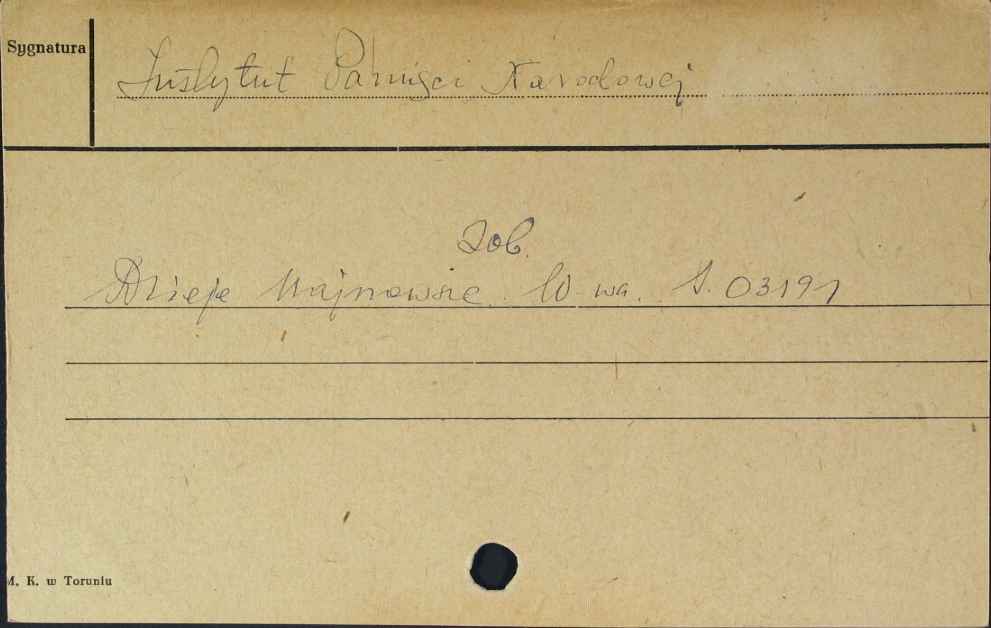 Sygnatura
Instytut Pamięci Narodowej
Zob.
Dzieje Najnowsze W-wa. S. 03191
M. K. w Toruniu